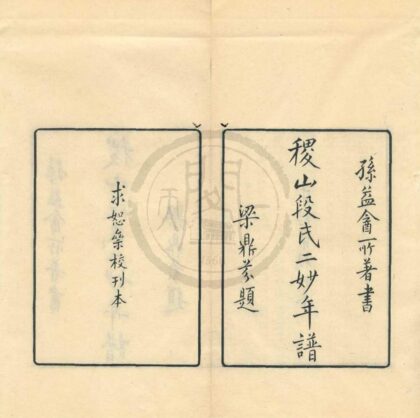 孫益盦所著書
稷山段氏二妙年譜
梁鼎芬題
求恕齋校刊本